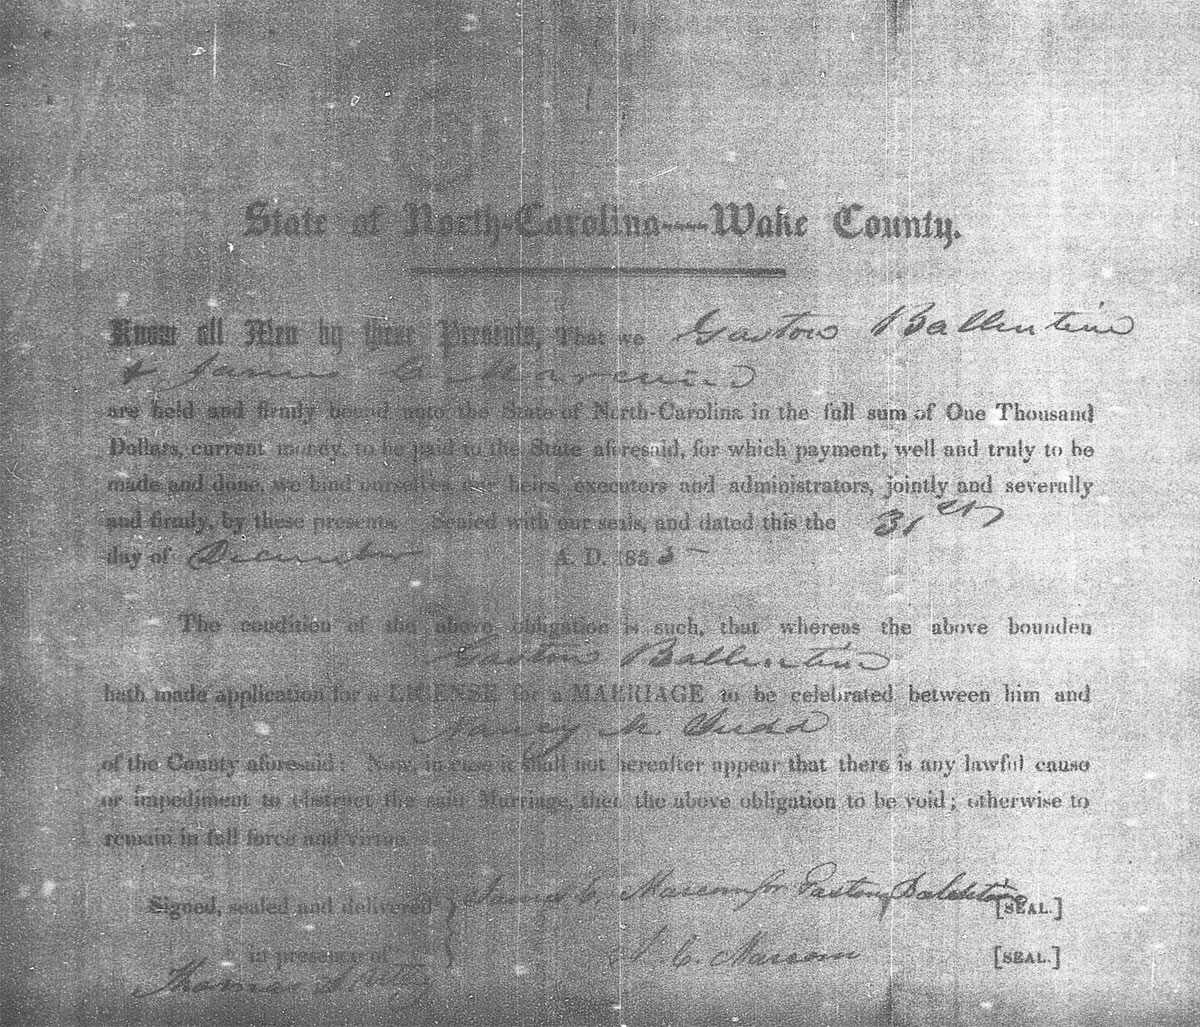 State of North-Carolina----Wake County.
Know all Men by these Presents, That we Gaston Ballentine
& James C Marcum
are held and firmly bound unto the State of North-Carolina in the full sum of One Thousand
Dollars, current money, to be paid to the State aforesaid, for which payment, well and truly to be
made and done, we bind ourselves our heirs, executors and administrators, jointly and severally
and firmly, by these presents. Sealed with our seals, and dated this the 31st
day of December A. D. 1855
The condition of the above obligation is such, that whereas the above bounden
Gaston Ballentine
hath made application for a LICENSE for a MARRIAGE to be celebrated between him and
Nancy M. Judd
of the County aforesaid: Now, in case it shall not hereafter appear that there is any lawful cause
or impediment to obstruct the said Marriage, then the above obligation to be void; otherwise to
remain in full force and virtue.
Signed, sealed and delivered James C. Marcom for Gaston [SEAL.]
in presence of C. Marcom [SEAL.]
Thomas